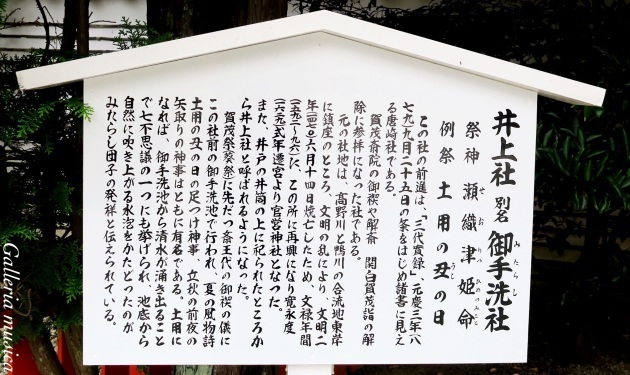 井上社 別名 御手洗社
みたらし
祭神 瀬織津姫命
せおりつひめのみこと
例祭 土用の丑の日
うし
この社の前進は、「三代實録」元慶三年八
七九九月二十五日の条をはじめ諸書に見え
る唐崎社である。
賀茂斎院の御禊や解斎 関白賀茂詣の解
除に参拝になった社である。
元の社地は、高野川と鴨川の合流地東岸
に鎮座のところ、文明の乱により、文明二
年(一四七〇)六月十四日焼亡したため、文禄年間
(一五九二〜九六)に、この所に再興になり寛永度
(一六二九)式年遷宮より官営神社となった。
また、井戸の井筒の上に祀られたところか
ら井上社と呼ばれるようになった。
賀茂祭(葵祭)に先だつ斎王代の御禊の儀に
この社前の御手洗池で行われ、夏の風物詩
土用の丑の日の足つけ神事、立秋の前夜の
矢取りの神事はともに有名である。土用に
なれば、御手洗池から清水が湧き出ること
で七不思議の一つにも挙げられ、池底から
自然に吹き上がる水泡をかたどったのが
みたらし団子の発祥と伝えられている。
Galleria musica